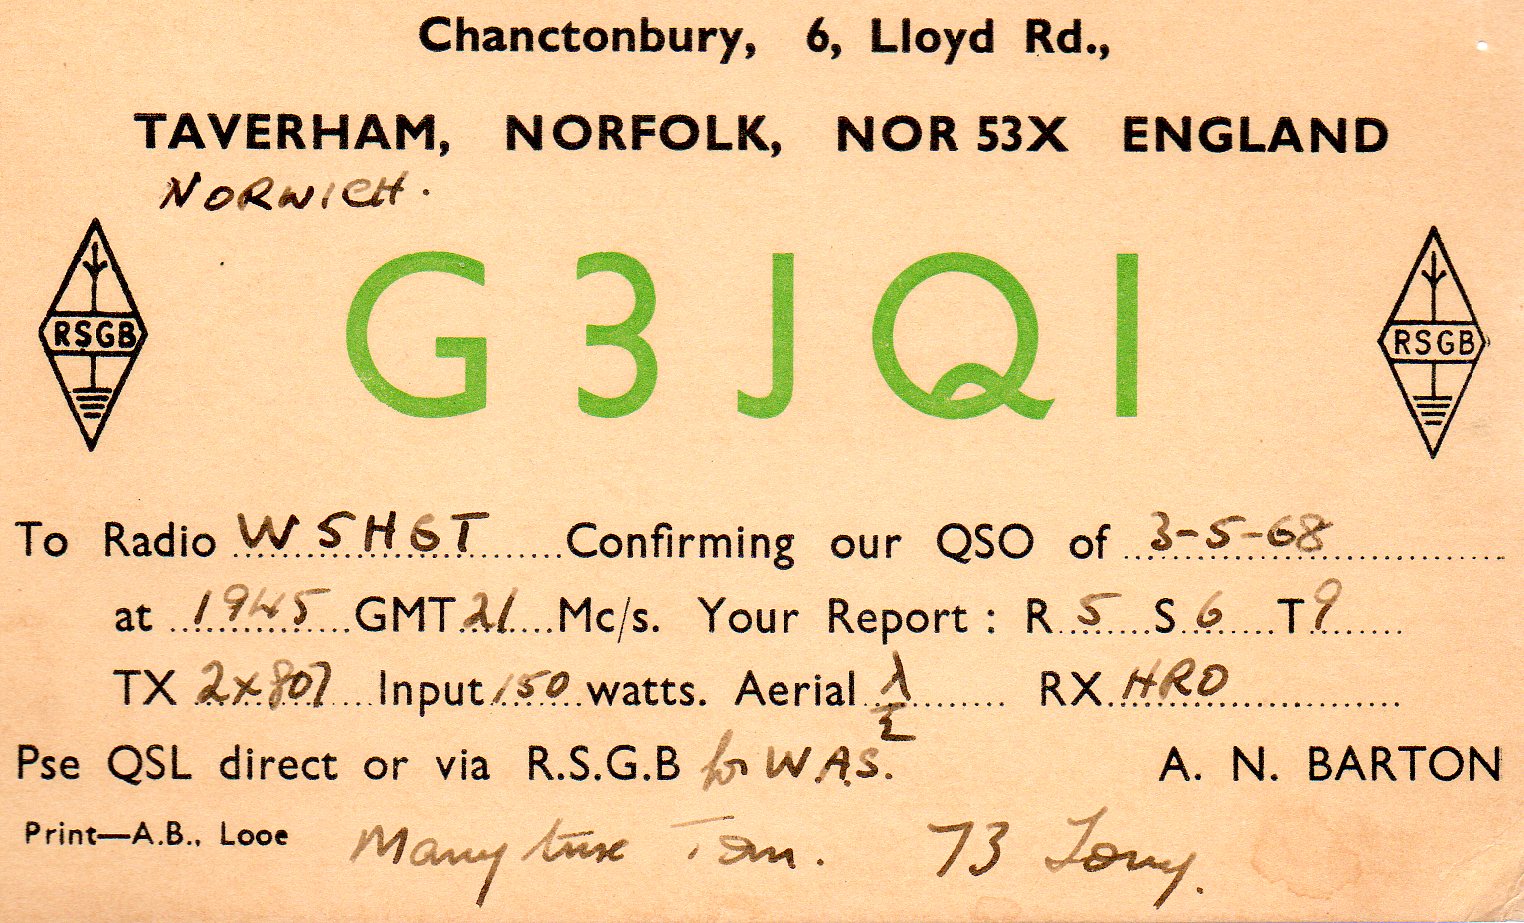 Chanctonbury, 6, Lloyd Rd.,
TAVERHAM, NORFOLK, NOR 53X ENGLAND
NORWICH.
G3JQI
RSGB
RSGB
To Radio W5HGT Confirming our QSO of 3-5-68
at 1945 GMT 21 Mc/s. Your Report: R 5 S 6 T 9
TX 2x807 Input 150 watts. Aerial λ/2 RX HRO
Pse QSL direct or via R.S.G.B for W.A.S.
A. N. BARTON
Print—A.B., Looe
Many tnx Tom. 73 Tony.